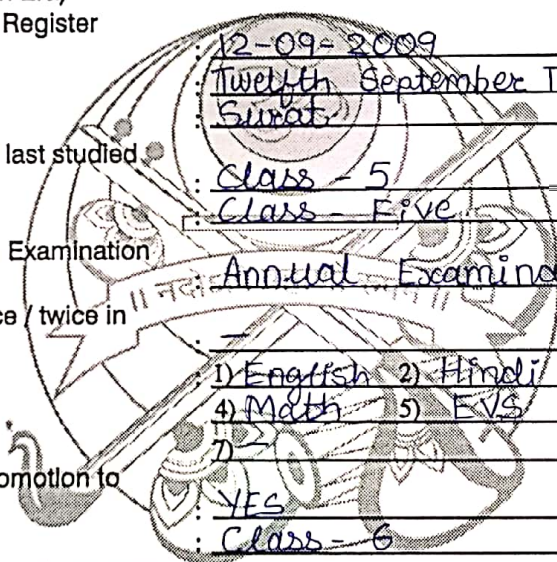 Register
: 12-09-2009
: Twelfth September T
: Surat
last studied
: Class - 5
: Class - Five
Examination
: Annual Examina
/ twice in
: -
1) English 2) Hindi
4) Math 5) EVS
7) -
to
: YES
: Class - 6